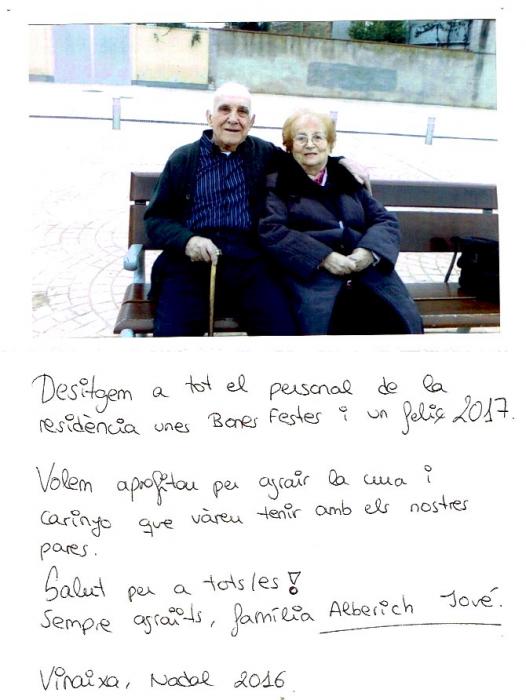 Desitgem a tot el personal de la
residència unes Bones Festes i un feliç 2017.
Volem aprofitar per agrair la cura i
carinyo que vàreu tenir amb els nostres
pares.
Salut per a tots/es!
Sempre agraïts, família Alberich Jové.
Vinaixa, Nadal 2016